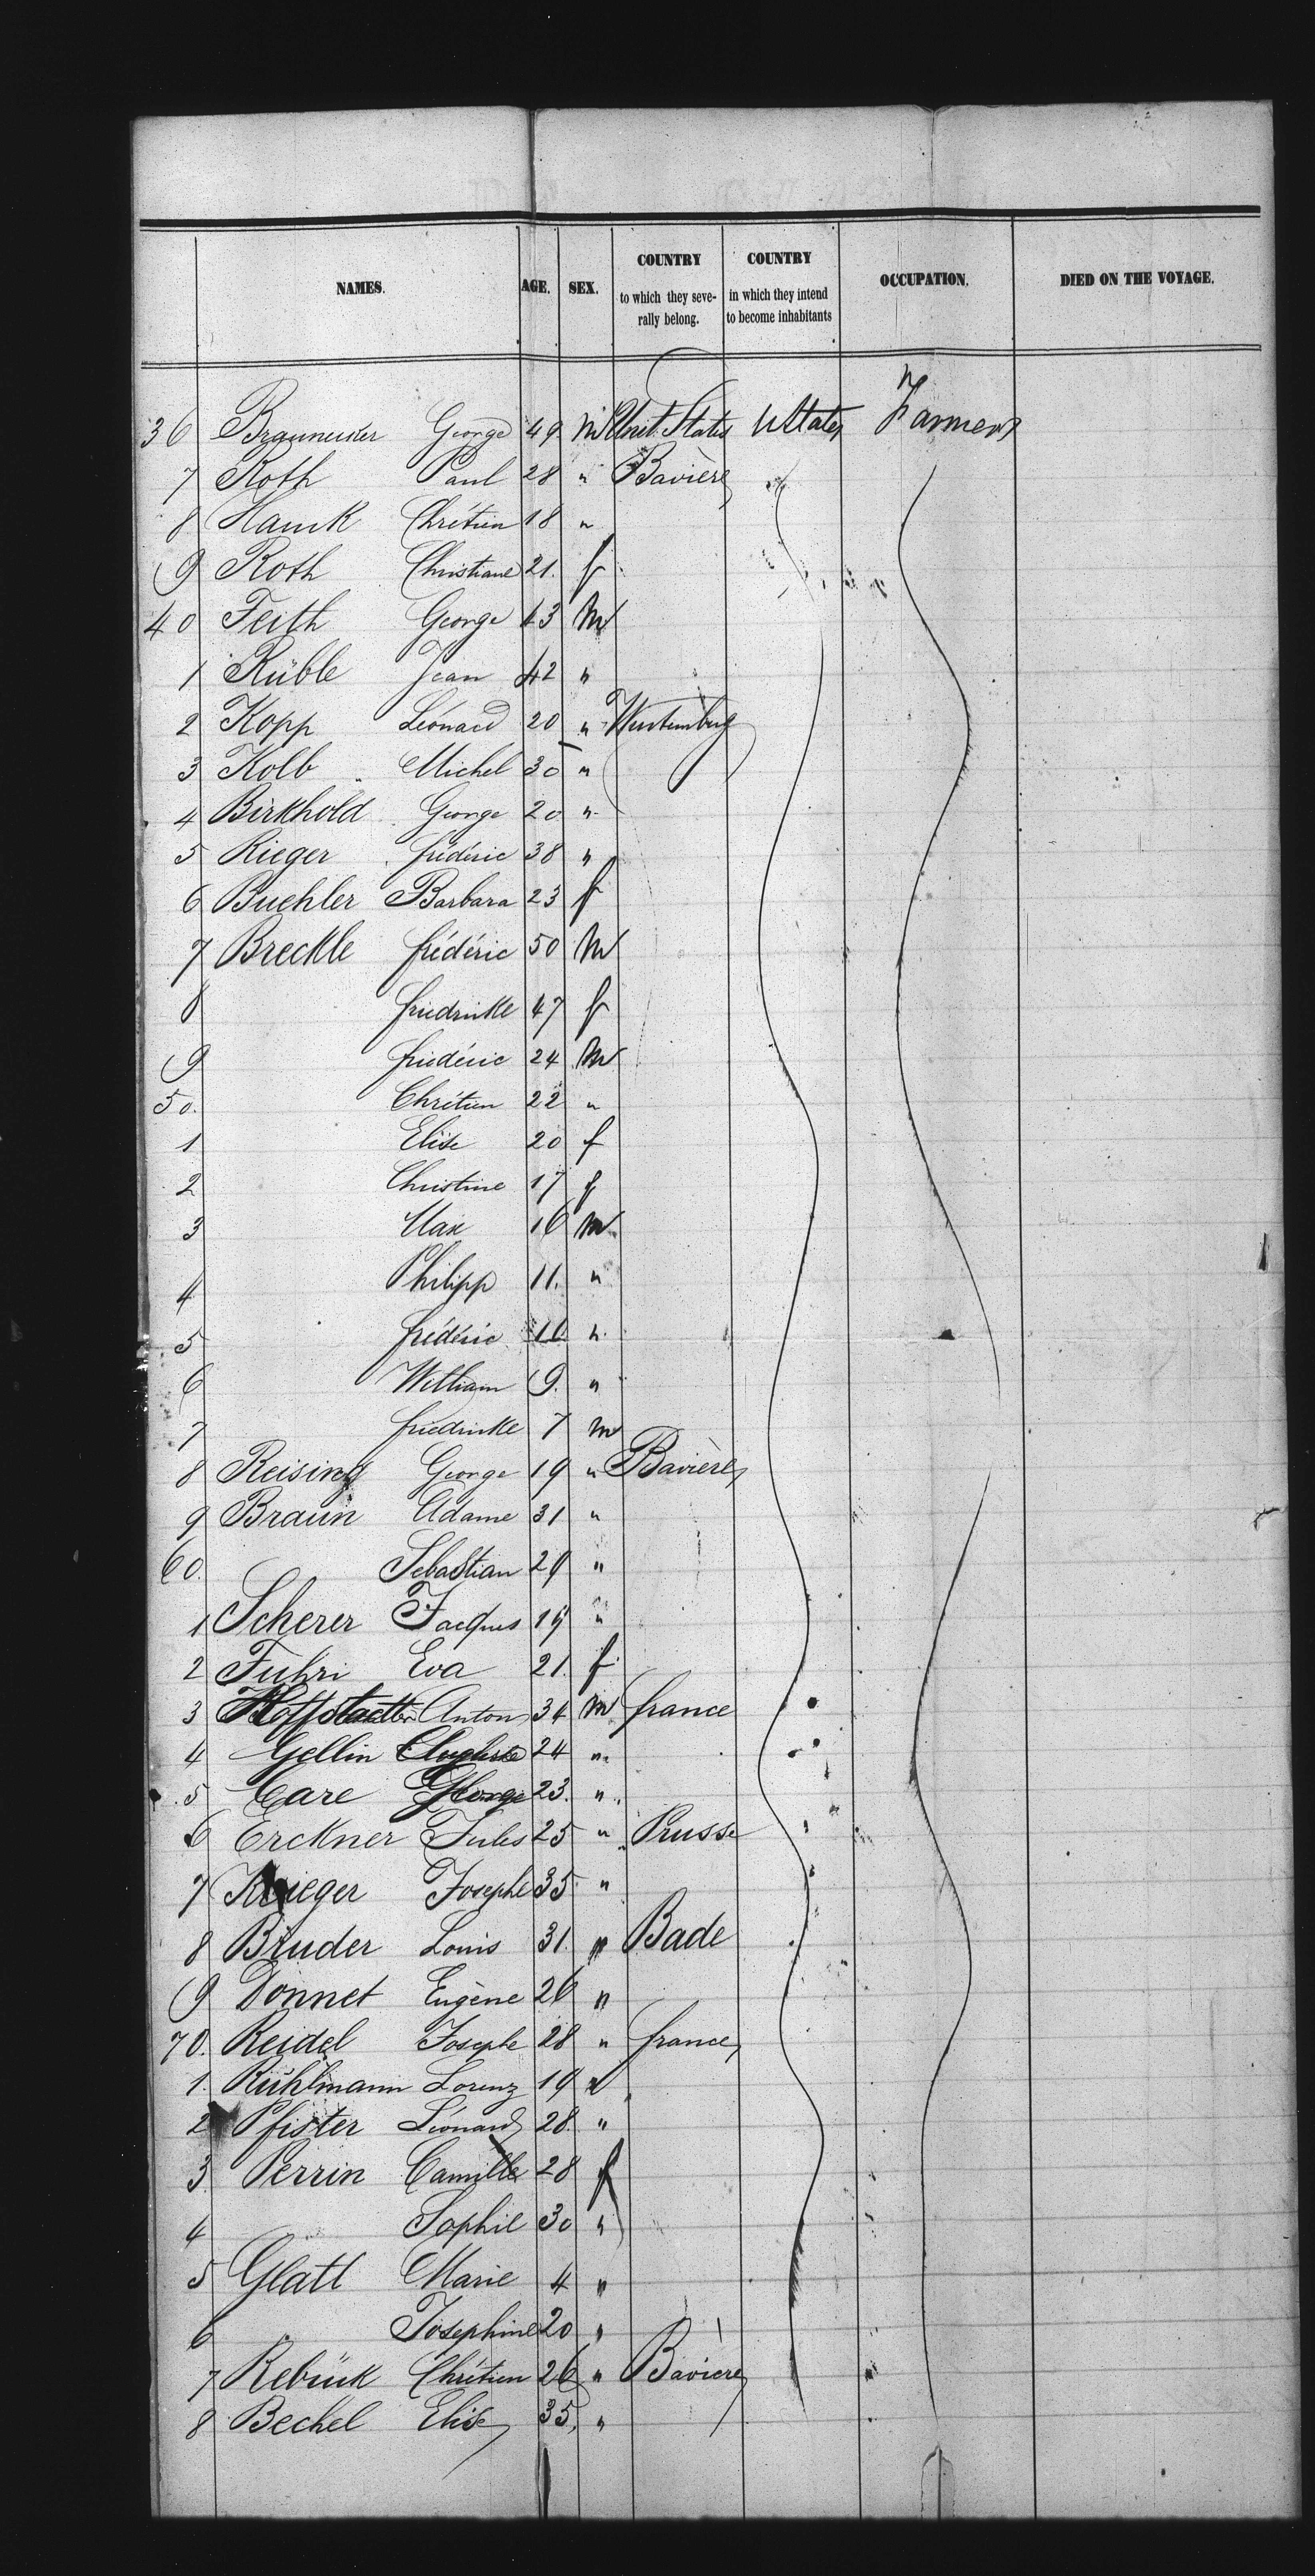 NAMES. AGE. SEX. COUNTRY to which they seve- rally belong. COUNTRY in which they intend to become inhabitants OCCUPATION. DIED ON THE VOYAGE.
36 George 49 m Unet. States UStates Farmers
7 Roth Paul 28 " Bavière
8 Hauck Chrétien 18 "
9 Roth Christiane 21. f
40 Feith George 43 m
1 Rüble Jean 42 "
2 Kopp Léonard 20 " Wurtemberg
3 Kolb Michel 30 "
4 Birkhold George 20 "
5 Rieger frédéric 38 "
6 Buehler Barbara 23 f
7 Breckle frédéric 50 m
8 friedrike 47 f
9 frédéric 24 m
50. Chrétien 22 "
1 Elise 20 f
2 Christine 17 f
3 Max 16 m
4 Philipp 11. "
5 frédéric "
6 William 9. "
7 friedrike 7 m
8 Reising George 19 " Bavière
9 Braun Adame 31 "
60. Sebastian 29 "
1 Scherer Jacques 19 "
2 Fuhri Eva 21. f
3 Hoffstaetter Anton 34 m france
4 Gellin Auguste 24 "
5 Care George 23. "
6 Erckner Jules 25 " Prusse
7 Krieger Josephe 35 "
8 Bruder Louis 31. " Bade
9 Donnet Eugène 26 "
70. Reidel Josephe 28 " france
1. Rühlmann Lorenz 19 "
2 Pfister Léonard 28. "
3 Perrin Camille 28 f
4 Sophie 30 "
5 Glatt Marie 4 "
6 Josephine 20 "
7 Rebük Chrétien 26 " Bavière
8 Bechel Elise 35, "